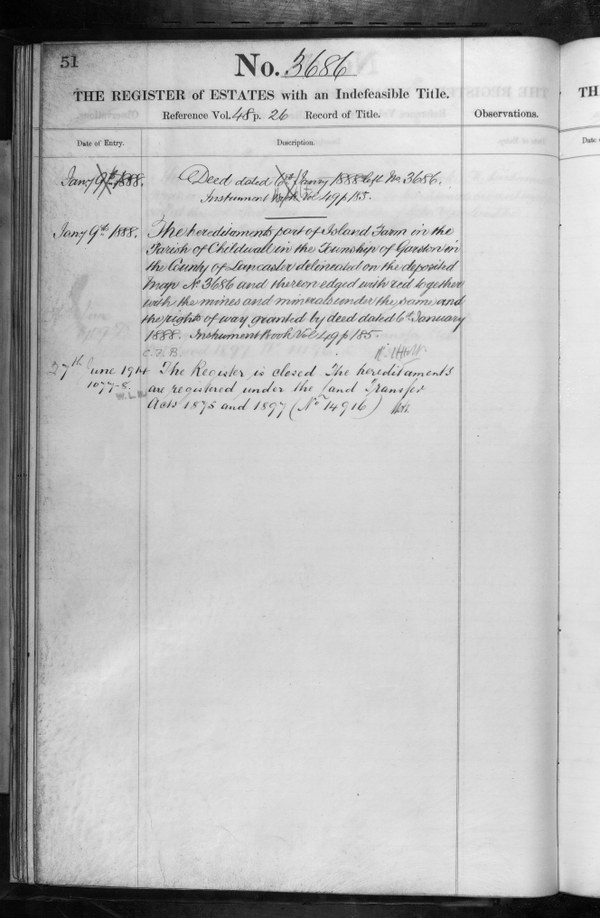 51
No. 3686
THE REGISTER of ESTATES with an Indefeasible Title.
Reference Vol. 48 p. 26 Record of Title.
Observations.
Date of Entry.
Description.
Jany 9th 1888. Deed dated 6th Janry 1888 left No 3686.
Instrument Vol 49 p 185.
Jany 9th 1888. The hereditaments part of Island Farm in the
Parish of Childwall in the Township of Garston in
the County of Lancaster delineated on the deposited
Map No 3686 and thereon edged with red together
with the mines and minerals under the same and
the rights of way granted by deed dated 6th January
1888. Instrument Book Vol 49 p 185.
C.T.B.
27th June 1914 The Register is closed The hereditaments
1077-8. are registered under the Land Transfer
W.L.
Acts 1875 and 1897 (No 14916)
TH
Date